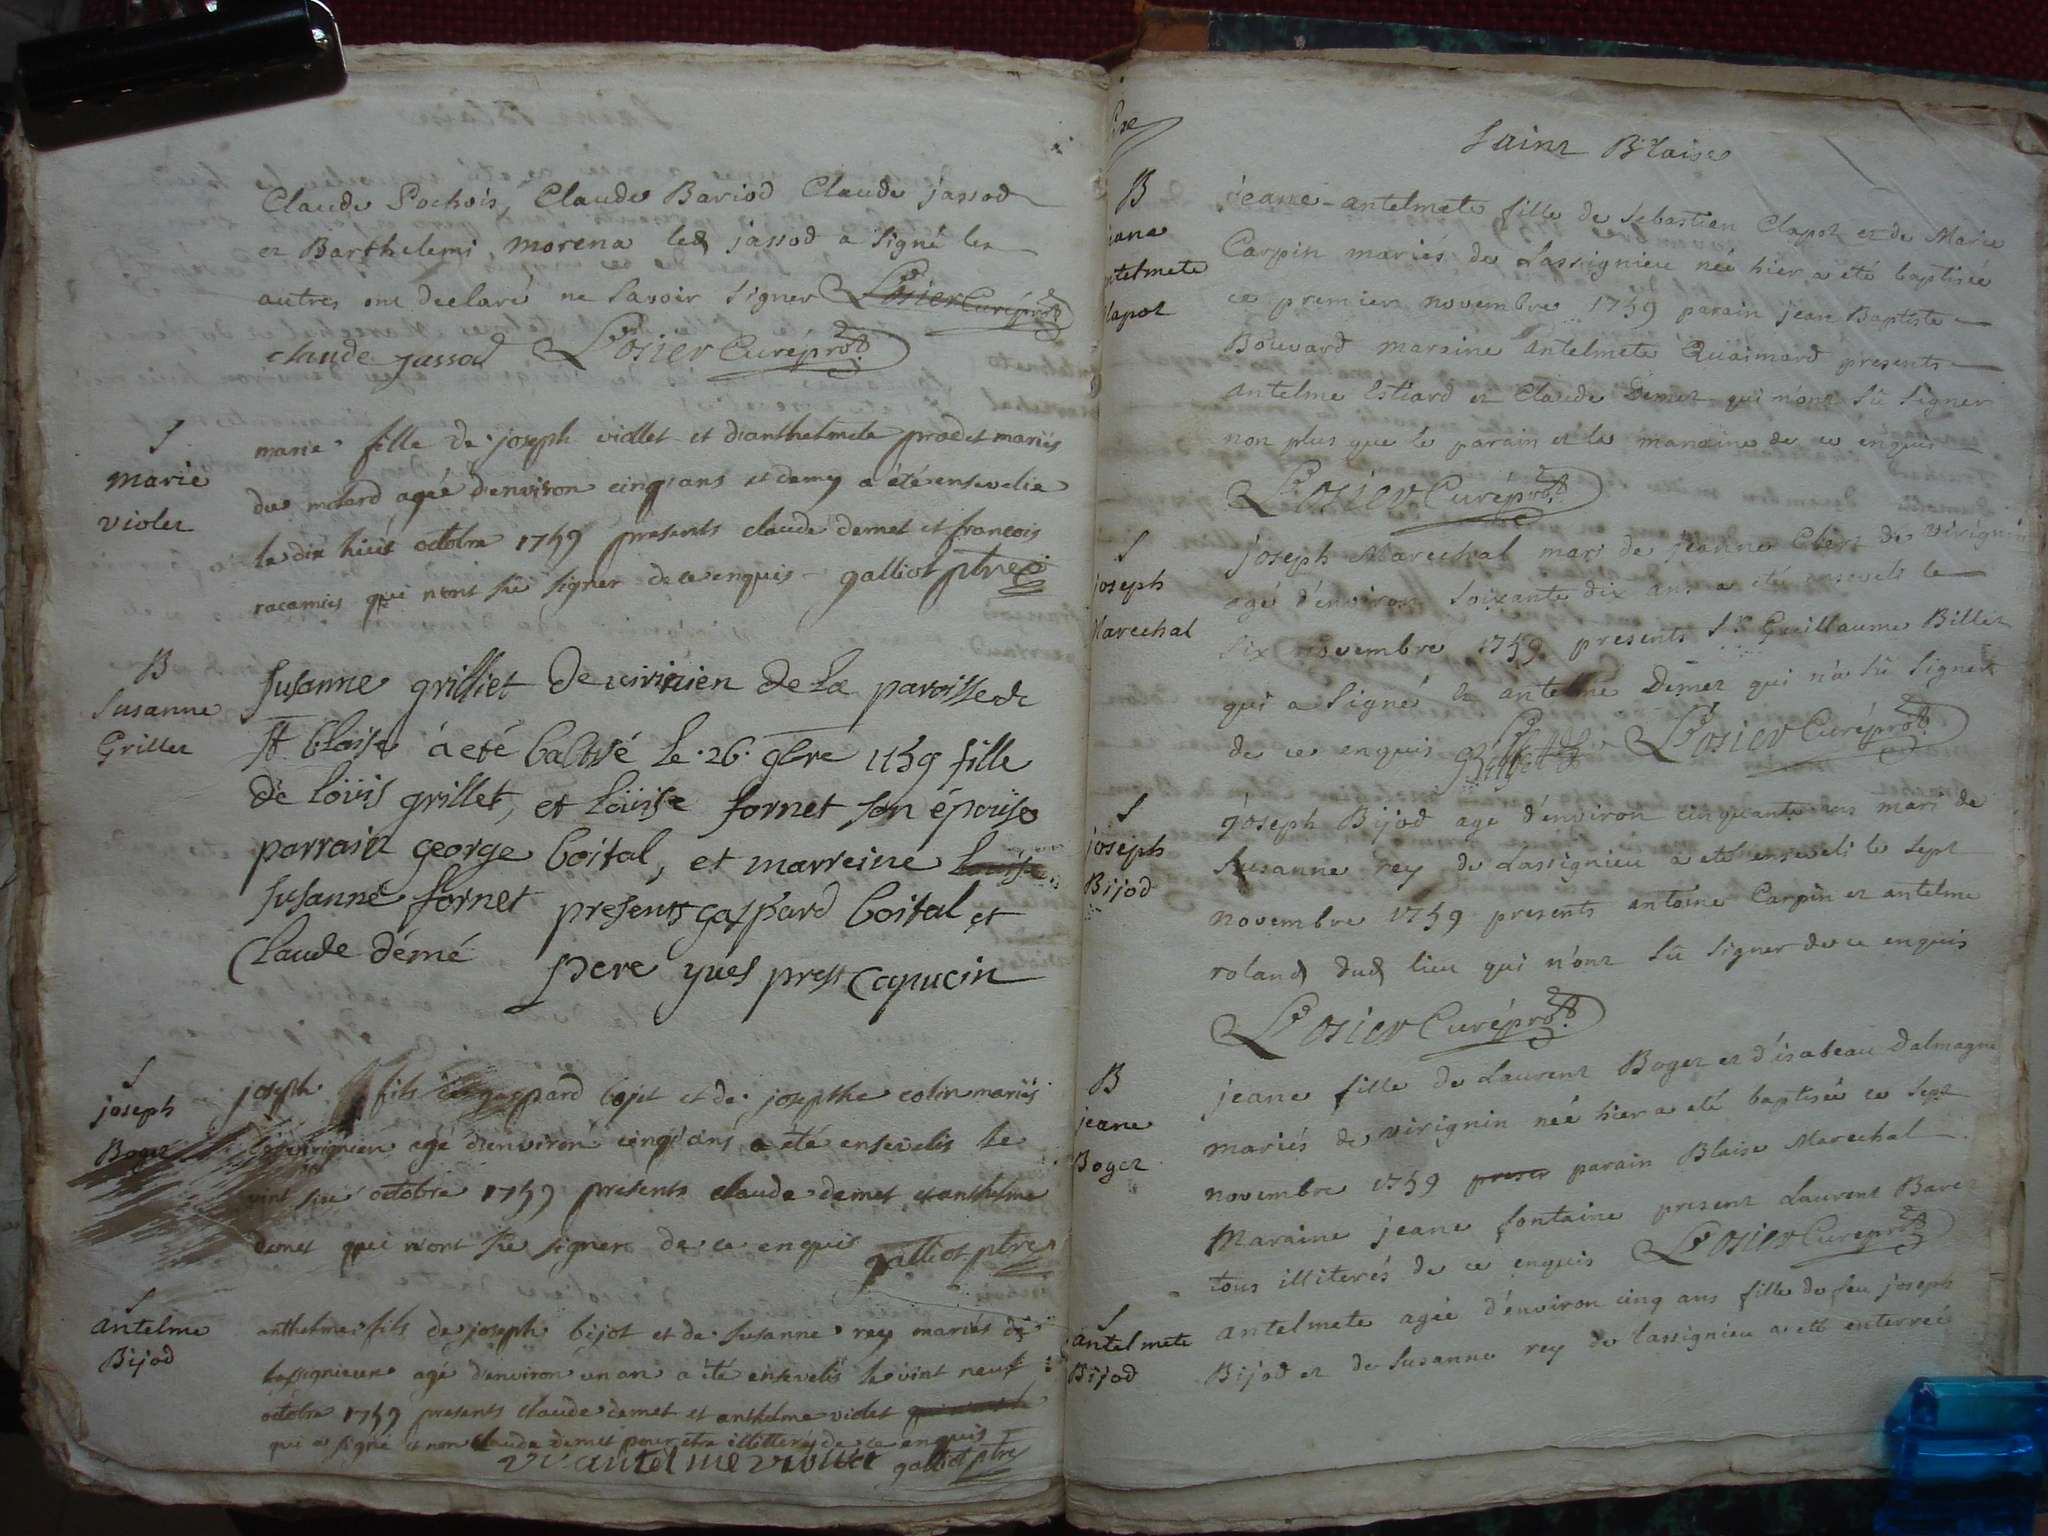 Claude Pochois, Claude Bariod Claude jassod
et Barthelemi morena led jassod a signé les
autres ont declaré ne savoir signer L'osier Curé prot
claude jassod L'osier Curé prot
S
marie
violet
marie fille de joseph viollet et d'anthelmete prodet mariés
du molard agée d'environ cinq ans et demy a été ensevelie
le dix huit octobre 1759 presents claude demet et francois
racamier qui n'ont sû signer de ce enquis galliot ptre
B
Susanne
Grillet
susanne grilliet de virinien de la paroisse de
st blaise à eté batisé le 26 9bre 1759 fille
de loüis grillet, et loüise fornet son épouse
parrain george boital, et marreine louise
susanne fornet presents gaspard boital et
Claude démé pere yves pres. Capucin
S
joseph
Boget
joseph fils de gaspard bojet et de josepthe colin mariés
de virignien agé d'environ cinq ans a été ensevelis le
vint six octobre 1759 presents claude demet et anthelme
demet qui n'ont sû signer de ce enquis galliot ptre
S
antelme
Bijod
anthelme fils de joseph bijot et de susanne rey mariés de
lassignieux agé d'environ un an a été ensevelis le vint neuf
octobre 1759 presents claude demet et anthelme violet qui n'ont sû
qui a signé et non claude demet pour etre illitteré de ce enquis
antelme violet galliot ptre
Saint Blaise
B
jeane
antelmete
Clapot
jeane-antelmete fille de Sebastien Clapot et de Marie
Carpin mariés de Lassignieu neé hier a été baptisée
ce premier novembre 1759 parain jean Baptiste
Bouvard maraine antelmete Quaimard presents
antelme Estiard et Claude Demet qui n'ont sû signer
non plus que le parain et la maraine de ce enquis
L'osier Curé prot
S
joseph
Marechal
joseph Marechal mari de jeanne Chert de virignin
agé d'environ soixante dix ans a été enseveli le
six novembre 1759 presents Sr Guillaume Billiet
qui a signé et antelme Demet qui n'a sû signer
de ce enquis Billiet L'osier Curé prot
S
joseph
Bijod
joseph Bijod agé d'environ cinquante ans mari de
susanne rey de Lassignieu a eté enseveli le sept
novembre 1759 presents antoine Carpin et antelme
roland dud lieu qui n'ont sû signer de ce enquis
L'osier Curé prot
B
jeane
Boget
jeane fille de Laurent Boget et d'isabeau Dalmagne
mariés de virignin neé hier a eté baptisée ce sept
novembre 1759 preser parain Blaise Marechal
Maraine jeane fontaine present Laurent Baret
tous illiterés de ce enquis L'osier Curé prot
S
antelmete
Bijod
antelmete agée d'environ cinq ans fille de feu joseph
Bijod et de susanne rey de lassignieu a eté enterreé